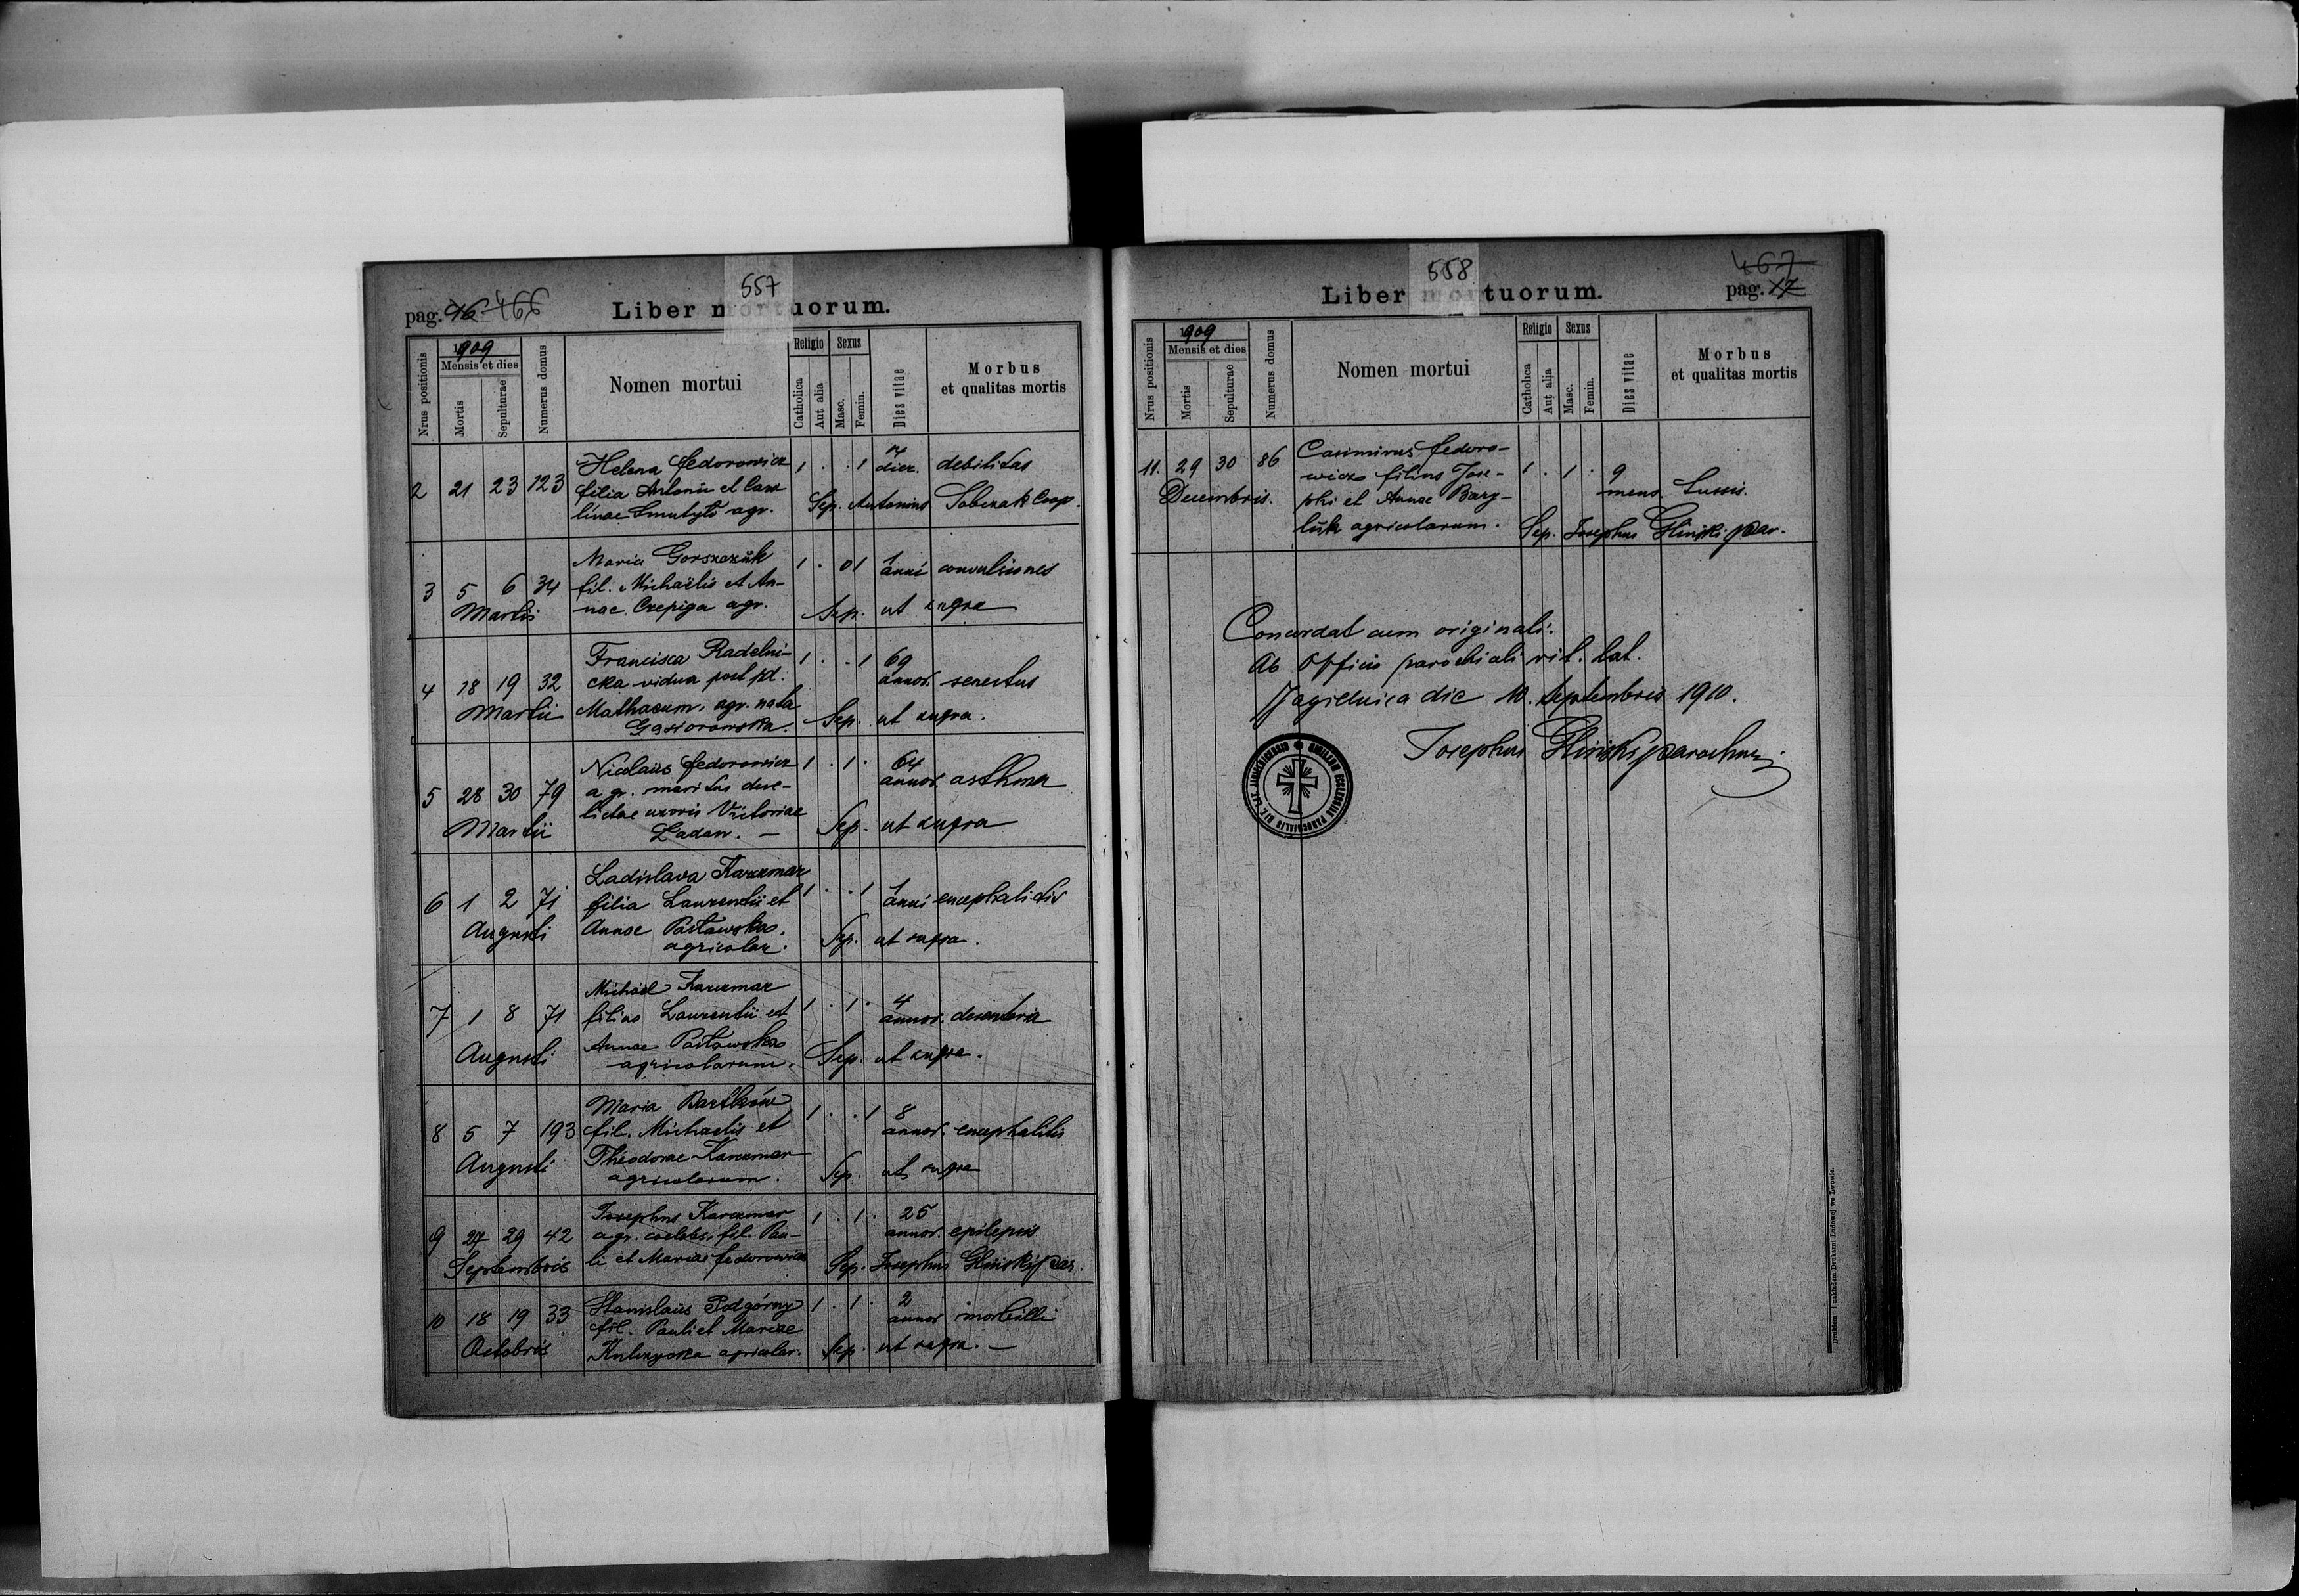 557
pag. 16 466
Liber mortuorum.
Nrus positionis
1909
Mensis et dies
Mortis
Sepulturae
Numerus domus
Nomen mortui
Religio
Catholica
Aut alia
Sexus
Masc.
Femin.
Dies vitae
Morbus
et qualitas mortis
2 21 23 123 Helena Fedorowicz 1 . . 1 dier. debilitas
filia Antonii et Caro
linae Smutyło agr. Sep. Antonius Sobczak Coop.
3 5 6 34 Maria Gorszczuk 1 . 01 1 anni convulsiones
Martii
fil. Michaëlis et An-
nae Czepiga agr. Sep. ut supra
4 18 19 32 Francisca Radelni- 1 . . 1 69
Martii
cka vidua post pd. annor. senectus
Mathaeum, agr. nata
Gąsiorowska. Sep. ut supra.
5 28 30 79 Nicolaüs Fedorowicz 1 . 1 . 64
Martii
agr. maritus dere- annor. asthma
lictae uxoris Victoriae
Ladan. — Sep. ut supra
6 1 2 71 Ladislava Karczmar 1 . . 1 1
Augusti
filia Laurentii et anni encephalitis
Annae Pasławska
agricolar. Sep. ut supra.
7 1 8 71 Michaël Karczmar 1 . 1 . 4
Augusti
filius Laurentii et annor. desenteria
Annae Pasławska
agricolarum. Sep. ut supra.
8 5 7 193 Maria Bartków 1 . . 1 8
Augusti
fil. Michaelis et annor. encephalitis
Theodorae Karczmar
agricolarum. Sep. ut supra
9 27 29 42 Josephus Karczmar 1 . 1 . 25
Septembris
agr. coelebs, fil. Pau- annor. epilepsis
li et Mariae Fedorowicz Sep. Josephus Gliński par.
10 18 19 33 Stanislaüs Podgórny 1 . 1 . 2
Octobris
fil. Pauli et Mariae annor morbilli
Kulczycka agricolar. Sep. ut supra. —
558
467
Liber mortuorum.
pag. 17
Nrus positionis
1909
Mensis et dies
Mortis
Sepulturae
Numerus domus
Nomen mortui
Religio
Catholica
Aut alia
Sexus
Masc.
Femin.
Dies vitae
Morbus
et qualitas mortis
11. 29 30 86 Casimirus Fedoro- 1 . 1 . 9
Decembris.
wicz filius Jose- mens. tussis.
phi et Annae Bary-
luk agricolarum. Sep. Josephus Gliński par.
Concordat cum originali:
Ab Officio parochiali rit. lat.
Jagielnica die 10. Septembris 1910.
Josephus Gliński parochus
Drukiem i nakładem Drukarni Ludowej we Lwowie.